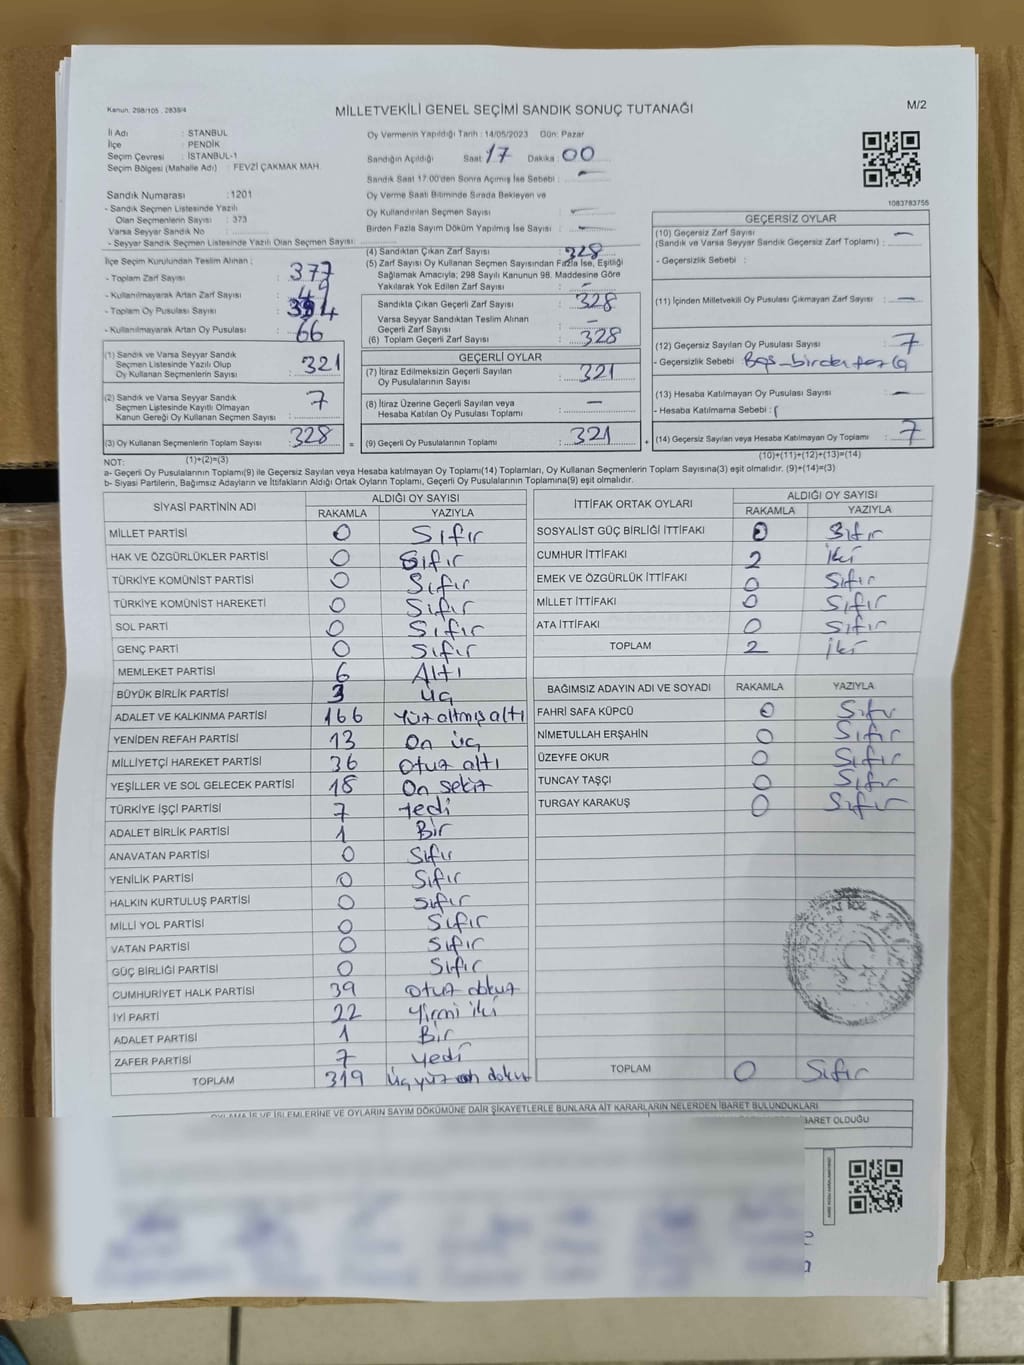 Kanun: 298/105 , 2839/4
MİLLETVEKİLİ GENEL SEÇİMİ SANDIK SONUÇ TUTANAĞI
M/2
İl Adı : STANBUL
İlçe : PENDİK
Seçim Çevresi : İSTANBUL-1
Seçim Bölgesi (Mahalle Adı) : FEVZİ ÇAKMAK MAH.
Sandık Numarası : 1201
- Sandık Seçmen Listesinde Yazılı
Olan Seçmenlerin Sayısı : 373
Varsa Seyyar Sandık No
- Seyyar Sandık Seçmen Listesinde Yazılı Olan Seçmen Sayısı:
Oy Vermenin Yapıldığı Tarih : 14/05/2023 Gün: Pazar
Sandığın Açıldığı Saat : 17 Dakika : 00
Sandık Saat 17:00'den Sonra Açımış İse Sebebi : -
Oy Verme Saati Bitiminde Sırada Bekleyen ve
Oy Kullandırılan Seçmen Sayısı : -
Birden Fazla Sayım Döküm Yapılmış İse Sayısı : -
1083783755
İlçe Seçim Kurulundan Teslim Alınan :
- Toplam Zarf Sayısı : 377
- Kullanılmayarak Artan Zarf Sayısı : 49
- Toplam Oy Pusulası Sayısı :
- Kullanılmayarak Artan Oy Pusulası : 66
(1) Sandık ve Varsa Seyyar Sandık
Seçmen Listesinde Yazılı Olup
Oy Kullanan Seçmenlerin Sayısı : 321
(2) Sandık ve Varsa Seyyar Sandık
Seçmen Listesinde Kayıtlı Olmayan
Kanun Gereği Oy Kullanan Seçmen Sayısı : 7
(3) Oy Kullanan Seçmenlerin Toplam Sayısı : 328
(4) Sandıktan Çıkan Zarf Sayısı : 328
(5) Zarf Sayısı Oy Kullanan Seçmen Sayısından Fazla İse, Eşitliği
Sağlamak Amacıyla; 298 Sayılı Kanunun 98. Maddesine Göre
Yakılarak Yok Edilen Zarf Sayısı : -
Sandıkta Çıkan Geçerli Zarf Sayısı : 328
Varsa Seyyar Sandıktan Teslim Alınan
Geçerli Zarf Sayısı : -
(6) Toplam Geçerli Zarf Sayısı : 328
GEÇERLİ OYLAR
(7) İtiraz Edilmeksizin Geçerli Sayılan
Oy Pusulalarının Sayısı : 321
(8) İtiraz Üzerine Geçerli Sayılan veya
Hesaba Katılan Oy Pusulası Toplamı : -
= (9) Geçerli Oy Pusulalarının Toplamı : 321 +
GEÇERSİZ OYLAR
(10) Geçersiz Zarf Sayısı
(Sandık ve Varsa Seyyar Sandık Geçersiz Zarf Toplamı) : -
- Geçersizlik Sebebi :
(11) İçinden Milletvekili Oy Pusulası Çıkmayan Zarf Sayısı : -
(12) Geçersiz Sayılan Oy Pusulası Sayısı : 7
- Geçersizlik Sebebi : Boş - birden fazla
(13) Hesaba Katılmayan Oy Pusulası Sayısı : -
- Hesaba Katılmama Sebebi :
(14) Geçersiz Sayılan veya Hesaba Katılmayan Oy Toplamı : 7
NOT: (1)+(2)=(3) (10)+(11)+(12)+(13)=(14)
a- Geçerli Oy Pusulalarının Toplamı(9) ile Geçersiz Sayılan veya Hesaba katılmayan Oy Toplamı(14) Toplamları, Oy Kullanan Seçmenlerin Toplam Sayısına(3) eşit olmalıdır. (9)+(14)=(3)
b- Siyasi Partilerin, Bağımsız Adayların ve İttifakların Aldığı Ortak Oyların Toplamı, Geçerli Oy Pusulalarının Toplamına(9) eşit olmalıdır.
SİYASİ PARTİNİN ADI ALDIĞI OY SAYISI
RAKAMLA YAZIYLA
MİLLET PARTİSİ 0 Sıfır
HAK VE ÖZGÜRLÜKLER PARTİSİ 0 Sıfır
TÜRKİYE KOMÜNİST PARTİSİ 0 Sıfır
TÜRKİYE KOMÜNİST HAREKETİ 0 Sıfır
SOL PARTİ 0 Sıfır
GENÇ PARTİ 0 Sıfır
MEMLEKET PARTİSİ 6 Altı
BÜYÜK BİRLİK PARTİSİ 3 üç
ADALET VE KALKINMA PARTİSİ 166 Yüz altmış altı
YENİDEN REFAH PARTİSİ 13 On üç
MİLLİYETÇİ HAREKET PARTİSİ 36 otuz altı
YEŞİLLER VE SOL GELECEK PARTİSİ 18 On sekiz
TÜRKİYE İŞÇİ PARTİSİ 7 Yedi
ADALET BİRLİK PARTİSİ 1 Bir
ANAVATAN PARTİSİ 0 Sıfır
YENİLİK PARTİSİ 0 Sıfır
HALKIN KURTULUŞ PARTİSİ 0 Sıfır
MİLLİ YOL PARTİSİ 0 Sıfır
VATAN PARTİSİ 0 Sıfır
GÜÇ BİRLİĞİ PARTİSİ 0 Sıfır
CUMHURİYET HALK PARTİSİ 39 Otuz dokuz
İYİ PARTİ 22 Yirmi iki
ADALET PARTİSİ 1 Bir
ZAFER PARTİSİ 7 yedi
TOPLAM 319 üç yüz on dokuz
İTTİFAK ORTAK OYLARI ALDIĞI OY SAYISI
RAKAMLA YAZIYLA
SOSYALİST GÜÇ BİRLİĞİ İTTİFAKI 0 Sıfır
CUMHUR İTTİFAKI 2 iki
EMEK VE ÖZGÜRLÜK İTTİFAKI 0 Sıfır
MİLLET İTTİFAKI 0 Sıfır
ATA İTTİFAKI 0 Sıfır
TOPLAM 2 iki
BAĞIMSIZ ADAYIN ADI VE SOYADI RAKAMLA YAZIYLA
FAHRİ SAFA KÜPCÜ 0 Sıfır
NİMETULLAH ERŞAHİN 0 Sıfır
ÜZEYFE OKUR 0 Sıfır
TUNCAY TAŞÇI 0 Sıfır
TURGAY KARAKUŞ 0 Sıfır
TOPLAM 0 Sıfır
OYLAMA İŞ VE İŞLEMLERİNE VE OYLARIN SAYIM DÖKÜMÜNE DAİR ŞİKAYETLERLE BUNLARA AİT KARARLARIN NELERDEN İBARET BULUNDUKLARI
İBARET OLDUĞU